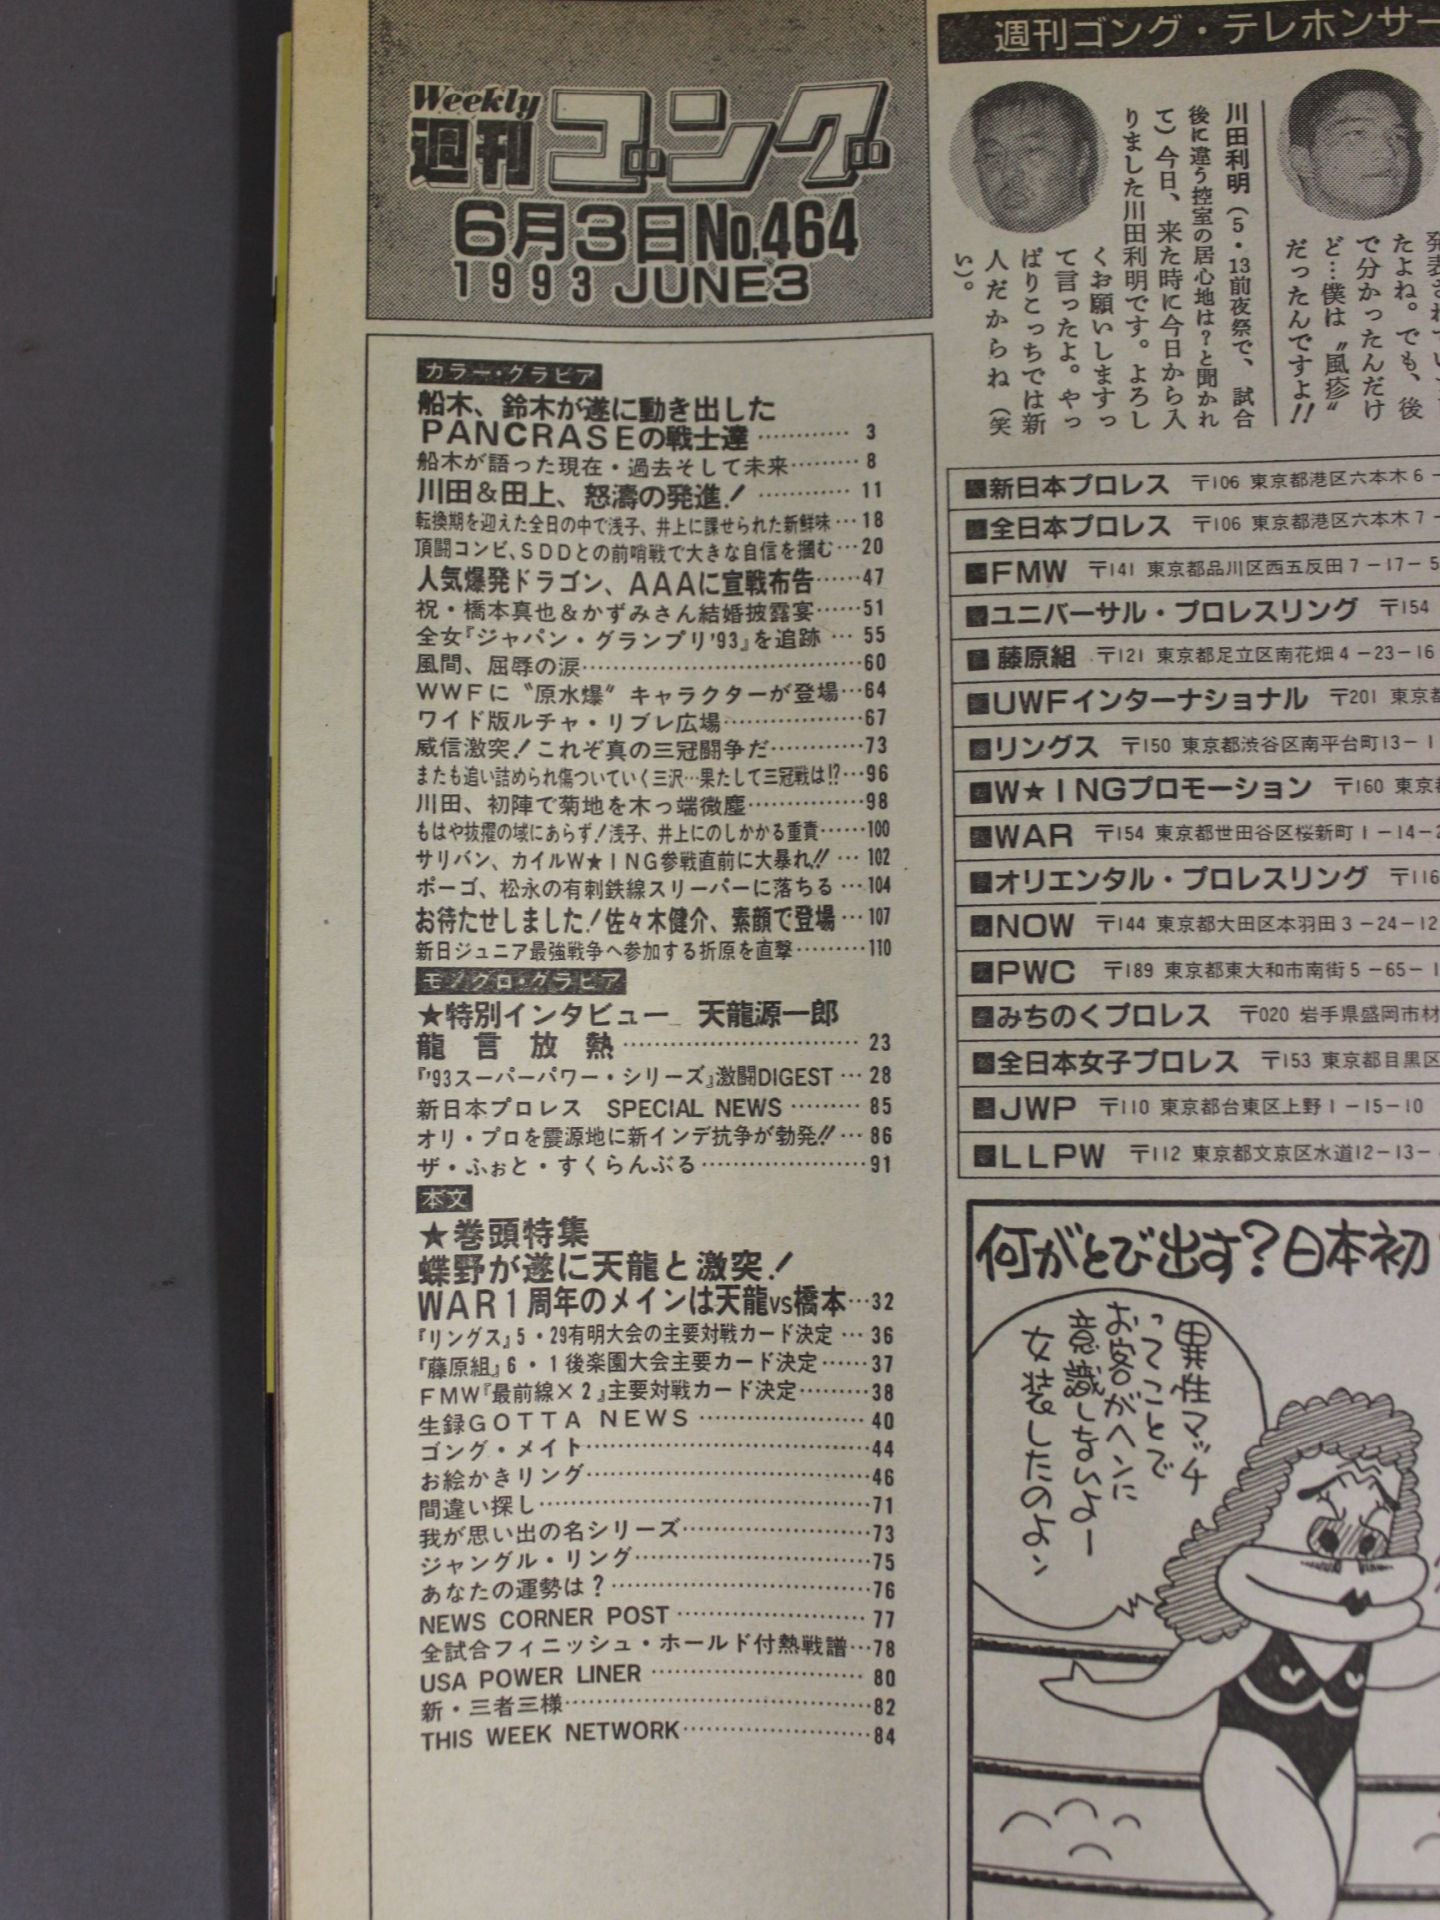 Weekly
週刊ゴング
6月3日No.464
1993 JUNE3
カラー・グラビア
船木、鈴木が遂に動き出した
PANCRASEの戦士達…………3
船木が語った現在・過去そして未来………8
川田&田上、怒濤の発進!…………11
転換期を迎えた全日の中で浅子、井上に課せられた新鮮味…18
頂闘コンビ、SDDとの前哨戦で大きな自信を掴む…20
人気爆発ドラゴン、AAAに宣戦布告……47
祝・橋本真也&かずみさん結婚披露宴……51
全女『ジャパン・グランプリ'93』を追跡…55
風間、屈辱の涙………………………………60
WWFに〝原水爆〟キャラクターが登場…64
ワイド版ルチャ・リブレ広場………………67
威信激突!これぞ真の三冠闘争だ…………73
またも追い詰められ傷ついていく三沢…果たして三冠戦は!?…96
川田、初陣で菊地を木っ端微塵……………98
もはや抜擢の域にあらず!浅子、井上にのしかかる重責……100
サリバン、カイルW★ING参戦直前に大暴れ!!…102
ポーゴ、松永の有刺鉄線スリーパーに落ちる…104
お待たせしました!佐々木健介、素顔で登場…107
新日ジュニア最強戦争へ参加する折原を直撃………110
モノクロ・グラビア
★特別インタビュー 天龍源一郎
龍言放熱……………………………23
『'93スーパーパワー・シリーズ』激闘DIGEST…28
新日本プロレス SPECIAL NEWS………85
オリ・プロを震源地に新インデ抗争が勃発!!…86
ザ・ふぉと・すくらんぶる…………………91
本文
★巻頭特集
蝶野が遂に天龍と激突!
WAR1周年のメインは天龍vs橋本…32
『リングス』5・29有明大会の主要対戦カード決定…36
『藤原組』6・1後楽園大会主要カード決定……37
FMW『最前線×2』主要対戦カード決定………38
生録GOTTA NEWS…………………40
ゴング・メイト………………………………44
お絵かきリング………………………………46
間違い探し……………………………………71
我が思い出の名シリーズ……………………73
ジャングル・リング…………………………75
あなたの運勢は?……………………………76
NEWS CORNER POST……………………77
全試合フィニッシュ・ホールド付熱戦譜…78
USA POWER LINER………………………80
新・三者三様…………………………………82
THIS WEEK NETWORK……………………84
週刊ゴング・テレホンサー
川田利明(5・13前夜祭で、試合
後に違う控室の居心地は?と聞かれ
て)今日、来た時に今日から入
りました川田利明です。よろし
くお願いしますっ
て言ったよ。やっ
ぱりこっちでは新
人だからね(笑
い)。
たよね。でも、後
で分かったんだけ
ど…僕は〝風疹〟
だったんですよ!!
■新日本プロレス 〒106 東京都港区六本木6-
■全日本プロレス 〒106 東京都港区六本木7-
■FMW 〒141 東京都品川区西五反田7-17-5
■ユニバーサル・プロレスリング 〒154
■藤原組 〒121 東京都足立区南花畑4-23-16
■UWFインターナショナル 〒201 東京都
■リングス 〒150 東京都渋谷区南平台町13-1
■W★INGプロモーション 〒160 東京都
■WAR 〒154 東京都世田谷区桜新町1-14-2
■オリエンタル・プロレスリング 〒116
■NOW 〒144 東京都大田区本羽田3-24-12
■PWC 〒189 東京都東大和市南街5-65-1
■みちのくプロレス 〒020 岩手県盛岡市材
■全日本女子プロレス 〒153 東京都目黒区
■JWP 〒110 東京都台東区上野1-15-10
■LLPW 〒112 東京都文京区水道12-13-
何がとび出す?日本初
異性マッチ
ってことで
お客がヘンに
意識しないよー
女装したのよン